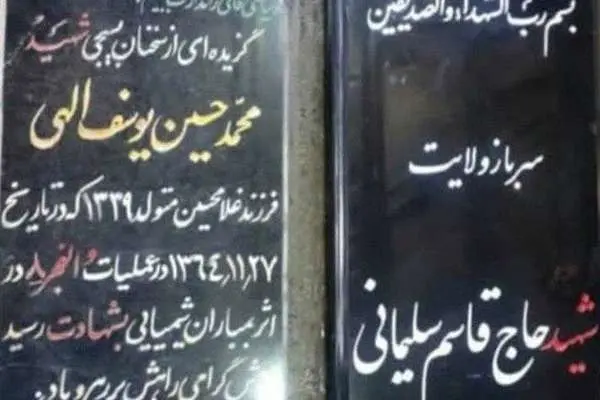 بسم رب الشهداء والصدیقین
سرباز ولایت
شهید حاج قاسم سلیمانی
گزیده‌ای از سخنان بسیجی شهید
محمد حسین یوسف الهی
فرزند غلامحسین متولد ۱۳۳۹ که در تاریخ
۱۳۶۴,۱۱,۲۷ در عملیات والفجر ۸ در
اثر بمباران شیمیایی بشهادت رسید
گرامی و راهش پر رهرو باد.